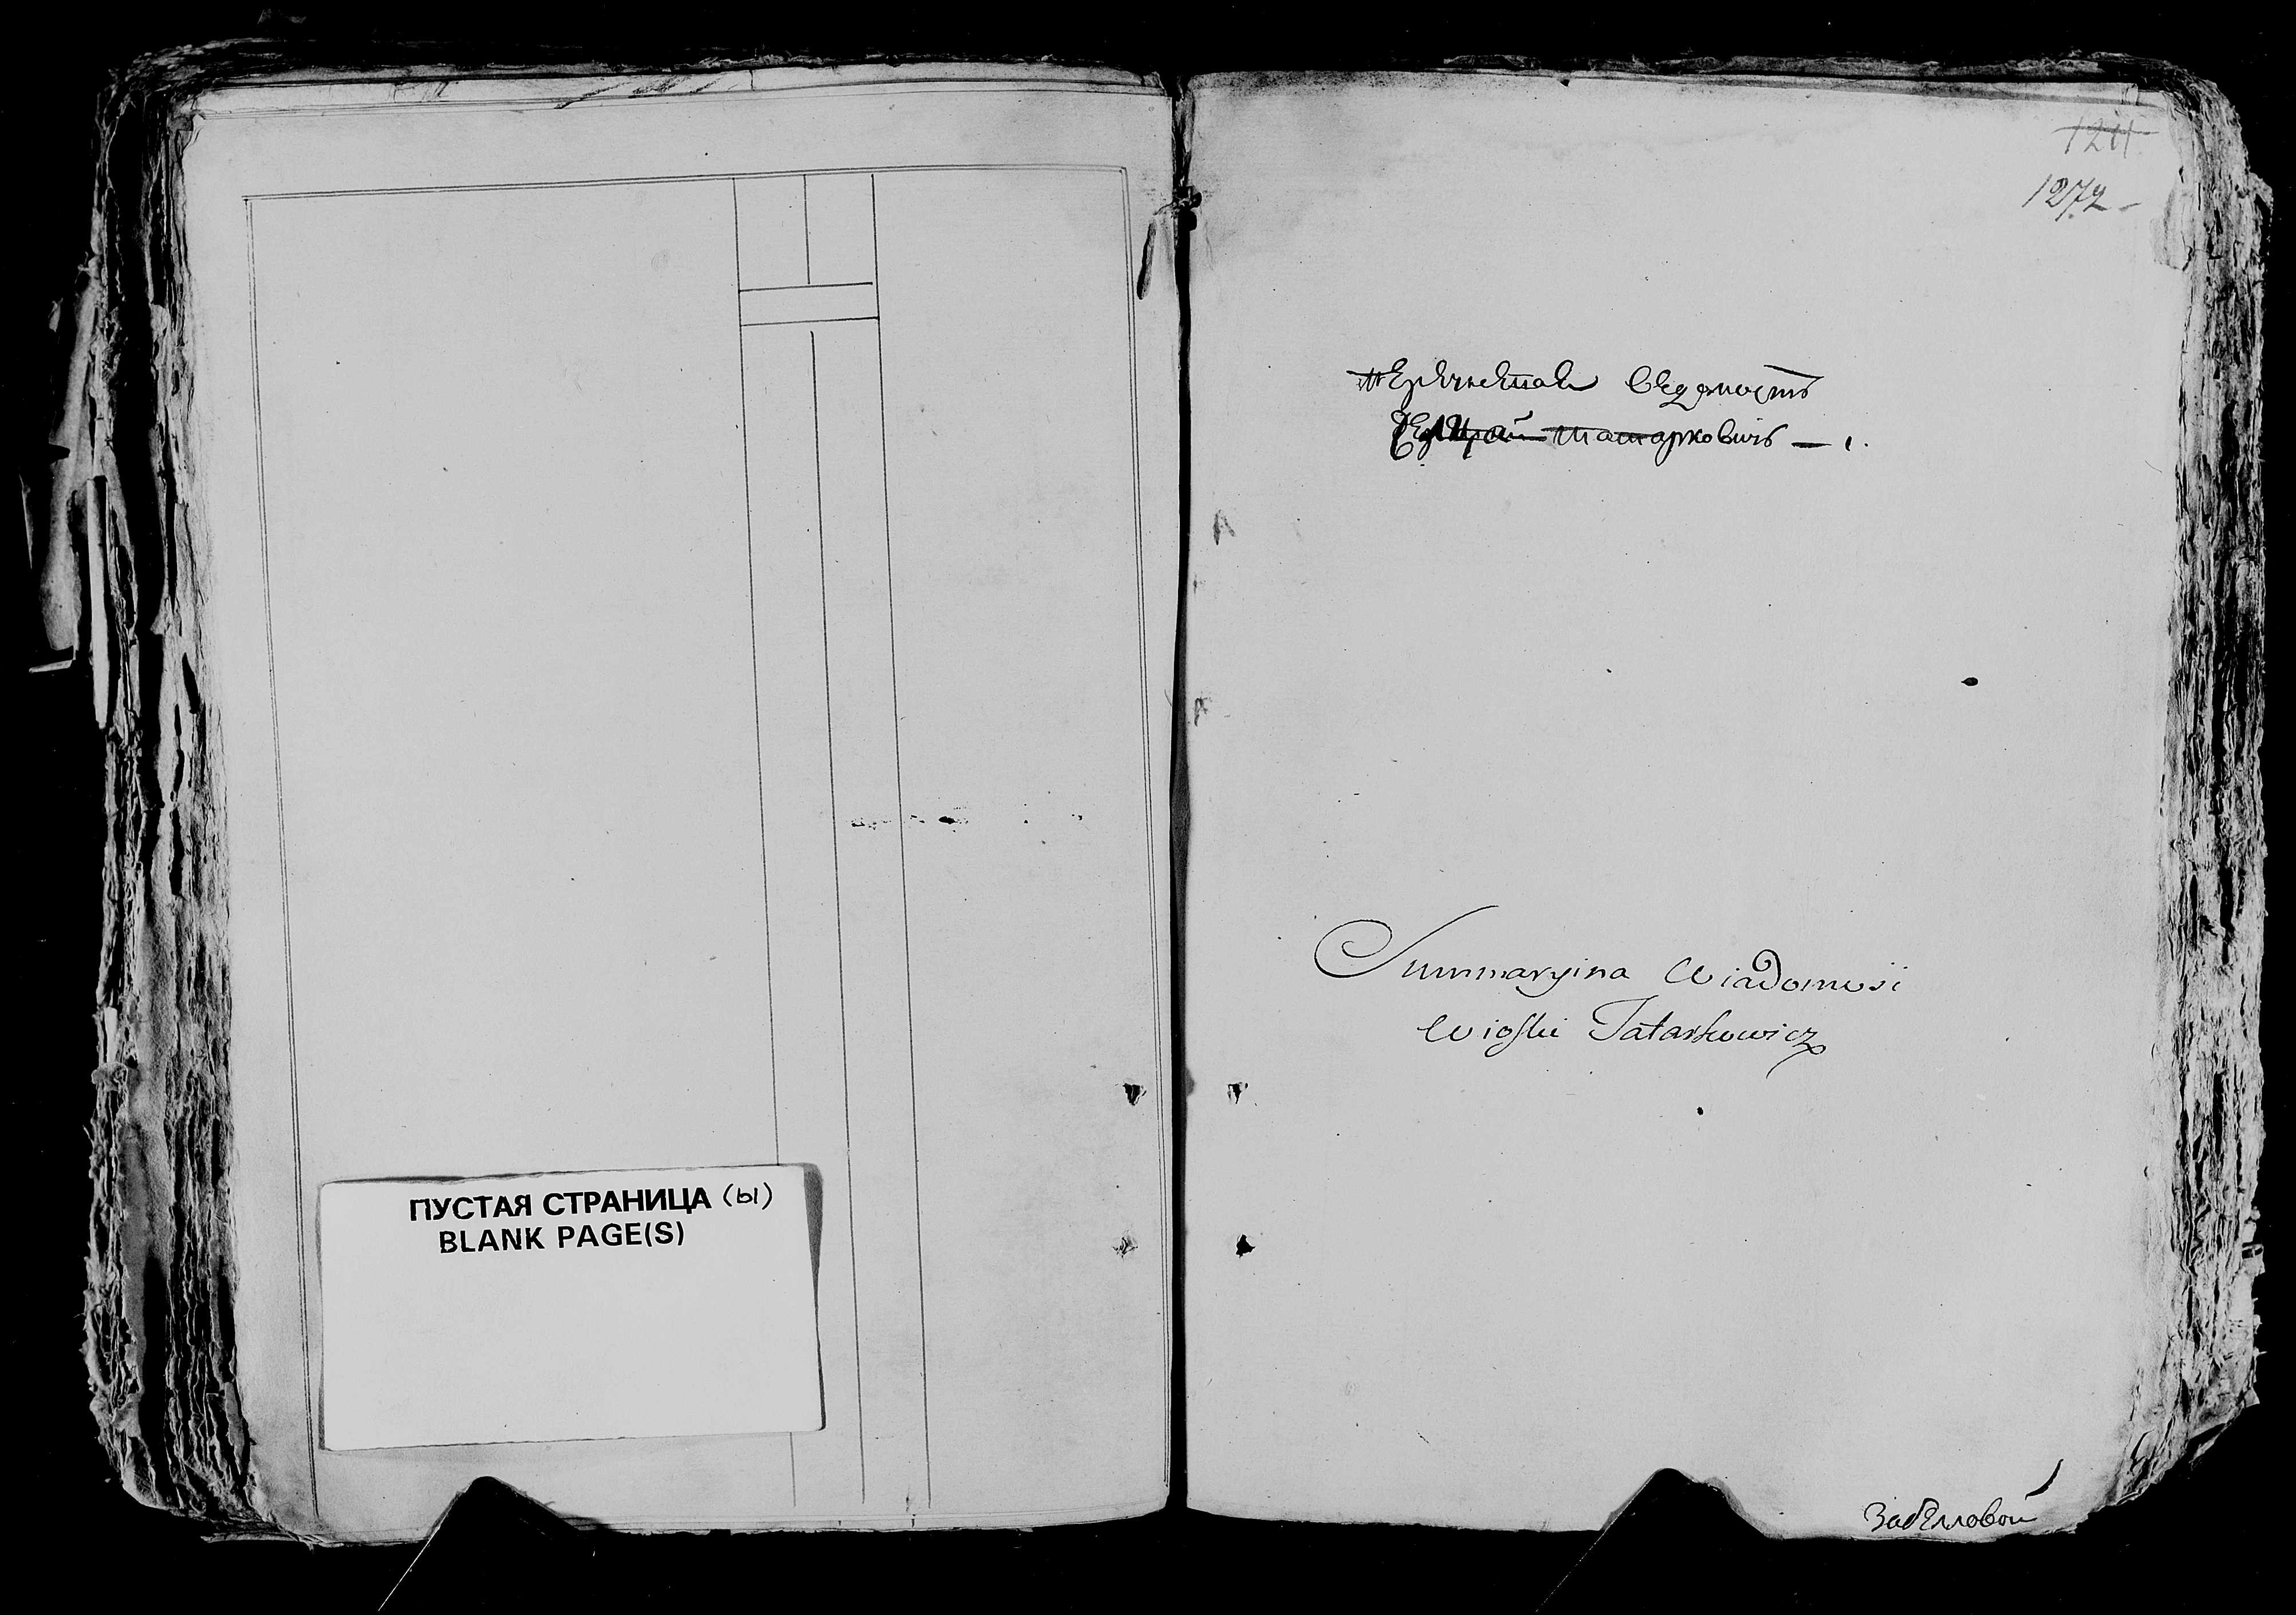 ПУСТАЯ СТРАНИЦА (ы)
BLANK PAGE(S)
1211
1272
Перечневая ведомость
Татарковичь
Summaryina Wiadomosi
Wioski Tatarkowicz
Забелловой